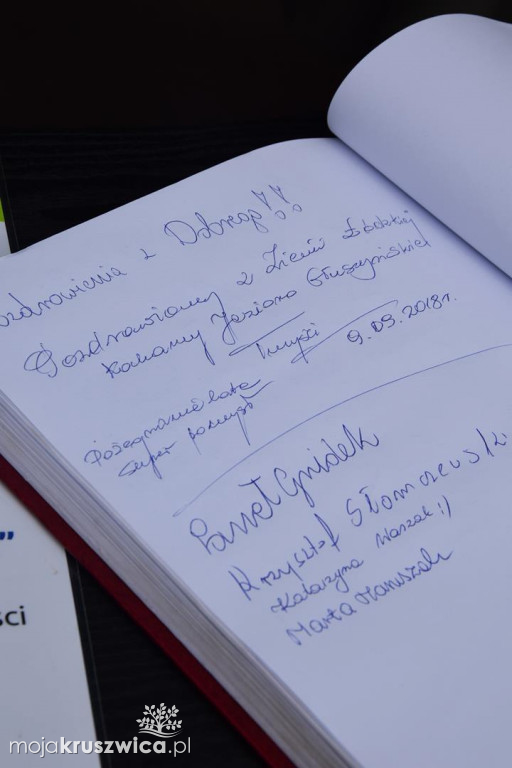 Pozdrowienia z Dobrego!!
Pozdrawiamy z Ziemi Łódzkiej
Kochamy Jezioro Głuszyńskie
Turyści 9.09.2018r.
Pożegnanie lata
super pomysł
Paweł Gnidek
Krzysztof Słomczewski
Katarzyna Waszak :)
Marta Maruszak
”
ści
mojakruszwica.pl